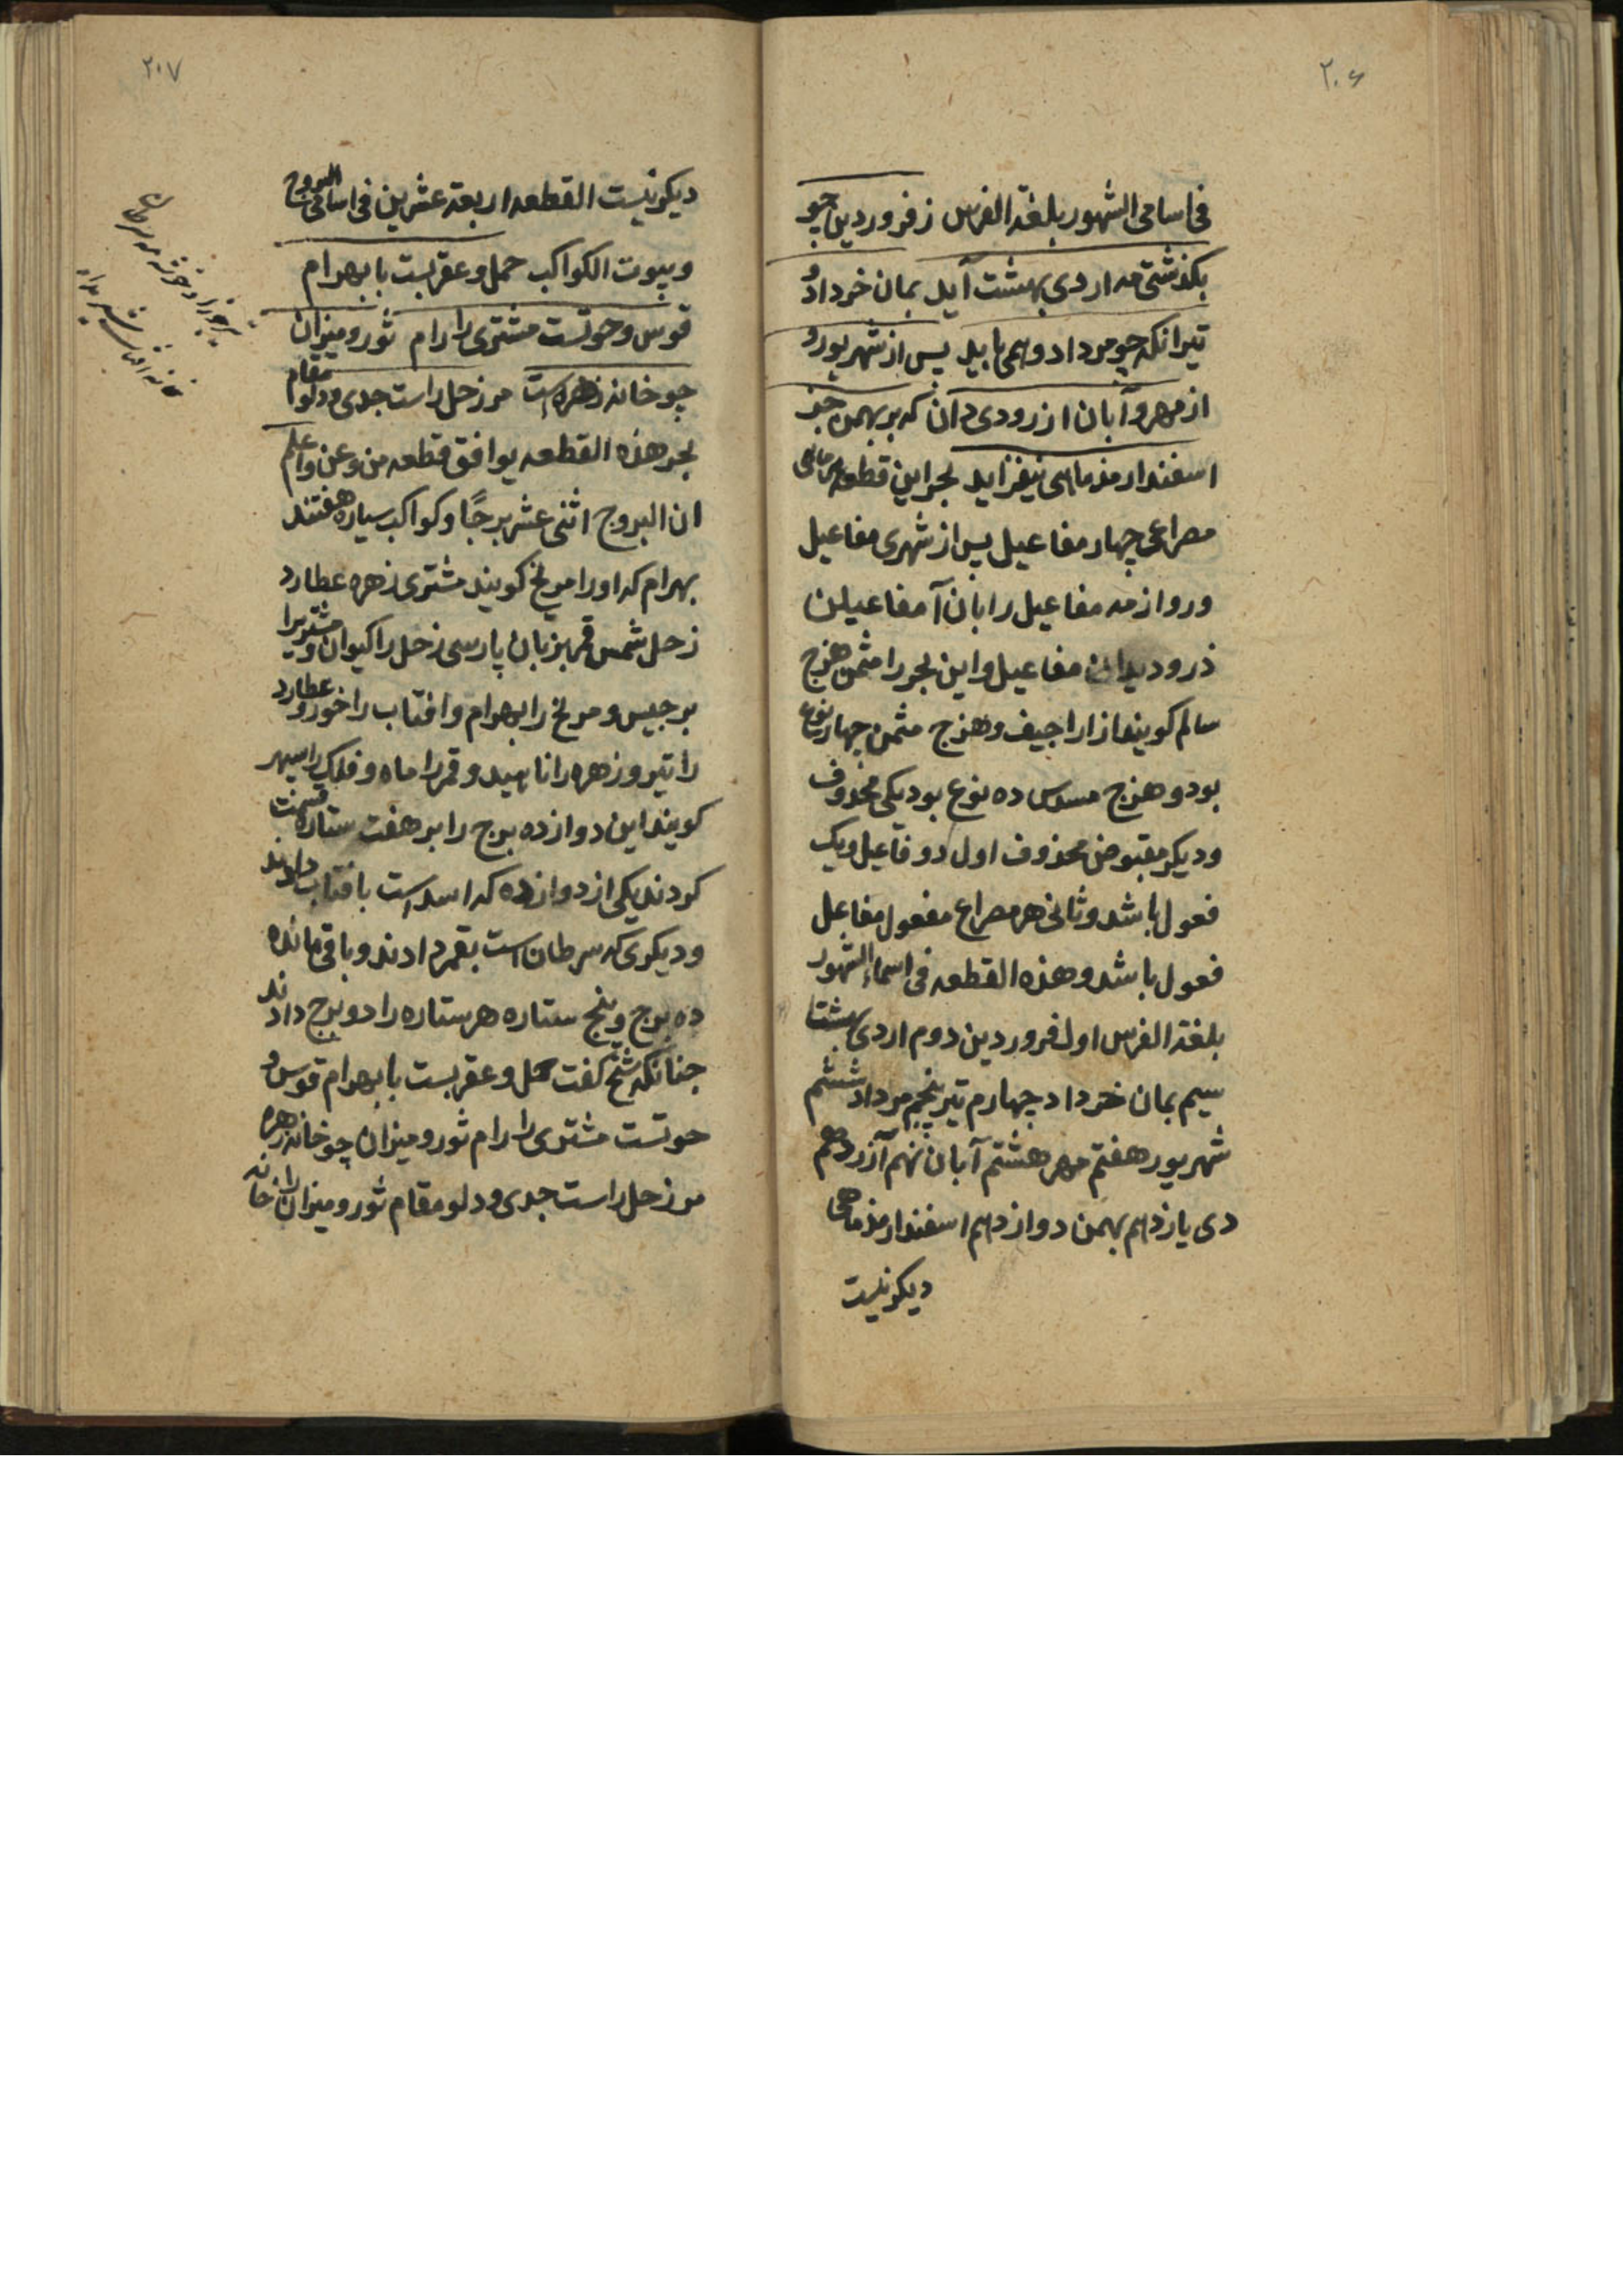 ۲۰۶
فی اسامی الشهور بلغة الفرس زفروردین چو
بکذشتی مه اردی بهشت آید بمان خرداد و
تیر انکه چو مرداد وهمی باید پس از شهریور و
از مهر و آبان ازر ودی دان که بر بهمن جز
اسفندارمذ ماهی نیفزاید بحر این قطعه
مصراعی چهار مفاعیل پس از شهری مفاعیل
ور واز مه مفاعیل را بان آ مفاعیلن
ذر ودیدان مفاعیل واین بحر را مثمن هزج
سالم کویند ازاراجیف وهزج مثمن چهار نوع
بود وهزج مسدس ده نوع بود یکی محذوف
ودیکر مقبوض محذوف اول دو فاعیل ویک
فعول باشد وثانی هر مصراع مفعول مفاعل
فعول باشد وهذه القطعه فی اسماء الشهور
بلغة الفرس اول فروردین دوم اردی بهشتا
سیم بمان خرداد چهارم تیر پنجم مرداد ششم
شهریور هفتم مهر هشتم آبان نهم آزر دهم
دی یازدهم بهمن دوازدهم اسفندارمذ ماهی
دیکر نیست
۲۰۷
دیکر نیست القطعه اربعة عشرین فی اسامی البروج
وبیوت الکواکب حمل وعقربست با بهرام
قوس وحوتست مشتری را رام ثور ومیزان
چو خانه زهره است مر زحل راست جدی ودلو مقام
بحر هذه القطعه یوافق قطعه من وعن واعلم
ان البروج اثنی عشر برجًا وکواکب سیاره هفتند
بهرام که اورا مریخ کویند مشتری زهره عطارد
زحل شمس قمر بزبان پارسی زحل را کیوان ومشتریرا
برجیس ومریخ را بهرام وافتاب را خور وعطارد
را تیر وزهره را ناهید وقمر را ماه وفلک را سپهر
کویند این دوازده برج را بر هفت ستاره قسمت
کردند یکی از دوازده که اسد است بافتاب دادند
ودیکری که سرطان است بقمر دادند وباقی مانده
ده برج وپنج ستاره هر ستاره را دو برج دادند
جنانکه شیخ کفت حمل وعقربست با بهرام قوس و
حوتست مشتری را رام ثور ومیزان چو خانه زهره
مر زحل راست جدی ودلو مقام ثور ومیزان را خانه